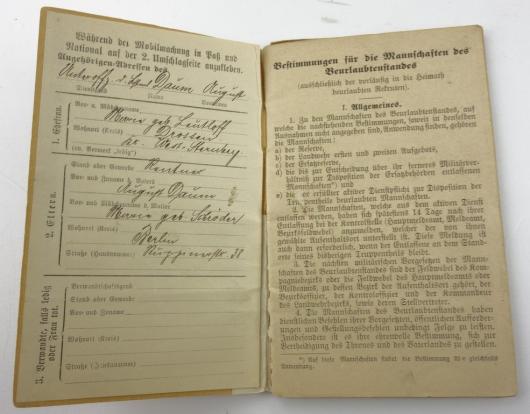 Während der Mobilmachung in Paß und
National auf der 2. Umschlagseite anzukleben.
Angehörigen-Adressen des
Unteroff. d. Daum August
Dienstgrad Name Vorname
1. Ehefrau.
Vor- u. Mädchenname
Marie geb. Leutloff
Wohnort (Kreis) Drossen
Kr. West-Sternberg
(ev. Vermerk "ledig")
2. Eltern.
Stand oder Gewerbe
Rentner
Vor- und Zuname d. Vaters
August Daum
Vor- und Mädchenname d. Mutter
Marie geb. Schröder
Wohnort (Kreis)
Berlin
Straße (Hausnummer) 38
3. Verwandte, falls ledig
oder Frau tot.
Verwandtschaftsgrad
Stand oder Gewerbe
Vor- und Zuname
Wohnort (Kreis)
Straße (Hausnummer)
Bestimmungen für die Mannschaften des
Beurlaubtenstandes
(ausschließlich der vorläufig in die Heimath
beurlaubten Rekruten).
I. Allgemeines.
1. Zu den Mannschaften des Beurlaubtenstandes, auf
welche die nachstehenden Bestimmungen, soweit in denselben
Ausnahmen nicht angegeben sind, Anwendung finden, gehören
die Mannschaften:
a) der Reserve,
b) der Landwehr ersten und zweiten Aufgebots,
c) der Ersatzreserve,
d) die bis zur Entscheidung über ihr ferneres Militärver-
hältniß zur Disposition der Ersatzbehörden entlassenen
Mannschaften*) und
e) die vor erfüllter aktiver Dienstpflicht zur Disposition der
Truppentheile beurlaubten Mannschaften.
2. Die Mannschaften, welche aus dem aktiven Dienst
entlassen werden, haben sich spätestens 14 Tage nach ihrer
Entlassung bei der Kontrolstelle (Hauptmeldeamt, Meldeamt,
Bezirksfeldwebel) anzumelden, welcher der von ihnen
gewählte Aufenthaltsort unterstellt ist. Diese Meldung ist
auch dann erforderlich, wenn der Entlassene an dem Stand-
orte seines bisherigen Truppentheils bleibt.
3. Die nächsten militärischen Vorgesetzten der Mann-
schaften des Beurlaubtenstandes sind der Feldwebel des Kom-
pagniebezirks oder die Feldwebel des Hauptmeldeamts oder
Meldeamts, zu dessen Bezirk der Aufenthaltsort gehört, der
Bezirksoffizier, der Kontroloffizier und der Kommandeur
des Landwehrbezirks, sowie deren Stellvertreter.
4. Die Mannschaften des Beurlaubtenstandes haben
dienstlichen Befehlen ihrer Vorgesetzten, öffentlichen Aufforder-
ungen und Gestellungsbefehlen unbedingt Folge zu leisten.
Insbesondere ist es ihre ehrenvolle Bestimmung, sich zur
Vertheidigung des Thrones und des Vaterlandes zu gestellen.
*) Auf diese Mannschaften findet die Bestimmung gleichfalls
Anwendung.